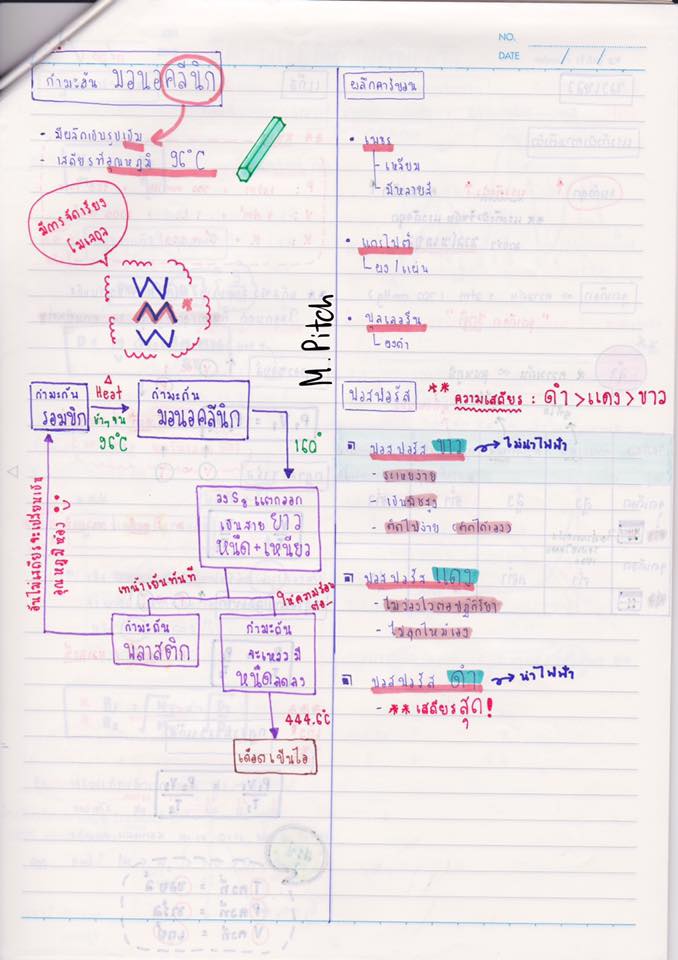 NO.
DATE / /
กำมะถัน มอนอคลีนิก
- มีผลึกเป็นรูปเข็ม
- เสถียรที่อุณหภูมิ 96°C
มีการจัดเรียง
โมเลกุล
M. Pitch
กำมะถัน
รอมบิก
Heat
ช้าๆ จน
96°C
กำมะถัน
มอนอคลีนิก
160°
วง S8 แตกออก
เป็นสาย ยาว
หนืด + เหนียว
เทน้ำเย็นทันที
ให้ความร้อน
ต่อ...
กำมะถัน
พลาสติก
กำมะถัน
จะเหลว มี
หนืด ลดลง
444.6°C
เดือด เป็นไอ
อันไม่เสถียรจะเปลี่ยนเป็น
อุณหภูมิห้อง
ผลึกคาร์บอน
• เพชร
เหลี่ยม
มีหลายสี
• แกรไฟต์
ผง / แผ่น
• ฟูลเลอรีน
ผงดำ
ฟอสฟอรัส ** ความเสถียร : ดำ > แดง > ขาว
ฟอสฟอรัส ขาว → ไม่นำไฟฟ้า
- ระเหยง่าย
- เป็นพิษสูง
- ติดไฟง่าย (ติดได้เอง)
ฟอสฟอรัส แดง
- ไม่ว่องไวต่อปฏิกิริยา
- ไม่ลุกไหม้เอง
ฟอสฟอรัส ดำ → นำไฟฟ้า
- ** เสถียรสุด!